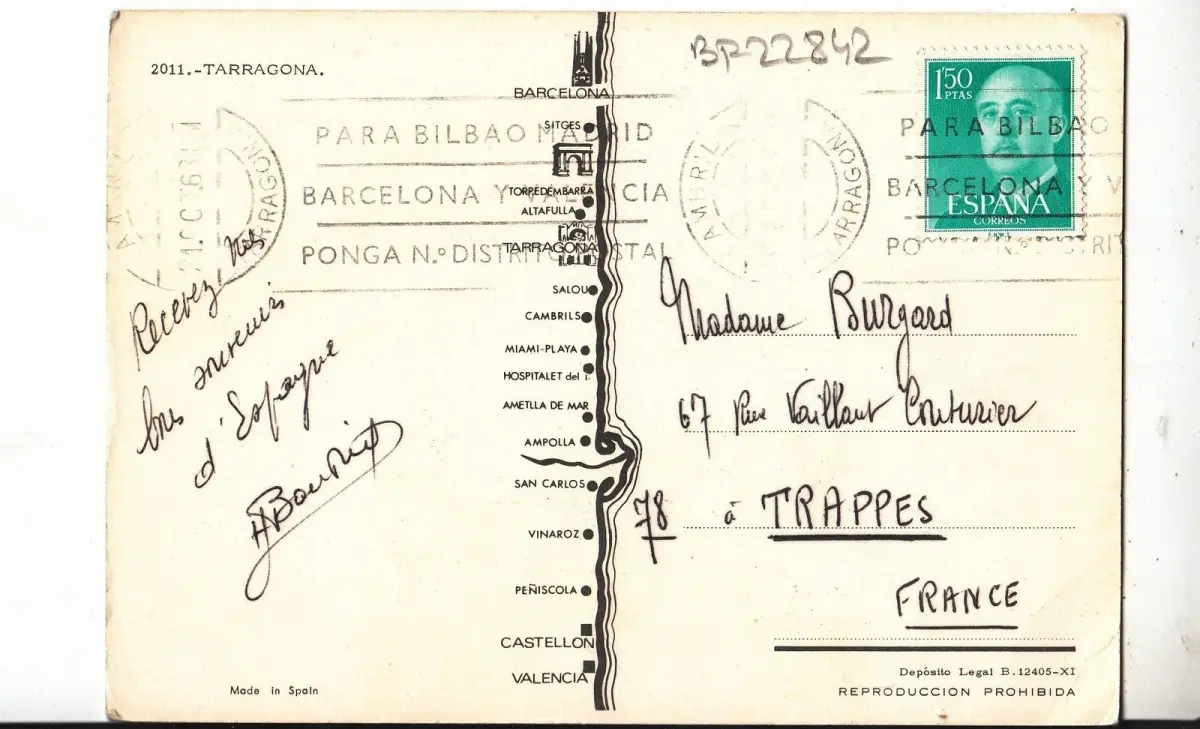 BF22842
2011.-TARRAGONA.
PARA BILBAO MADRID
BARCELONA Y VALENCIA
PONGA N.º DISTRITO POSTAL
21 OCT.68
TARRAGONA
Recevez nos
bons souvenirs
d'Espagne
BARCELONA
SITGES
TORREDEMBARRA
ALTAFULLA
TARRAGONA
SALOU
CAMBRILS
MIAMI-PLAYA
HOSPITALET del I.
AMETLLA DE MAR
AMPOLLA
SAN CARLOS
VINAROZ
PEÑISCOLA
CASTELLON
VALENCIA
AMBRIL
TARRAGON
1'50
PTAS
ESPAÑA
CORREOS
PARA BILBAO
BARCELONA Y V
PO N.º STRIT
Madame Burgard
67 Rue Vaillant Couturier
78 à TRAPPES
FRANCE
Depósito Legal B.12405-XI
REPRODUCCION PROHIBIDA
Made in Spain